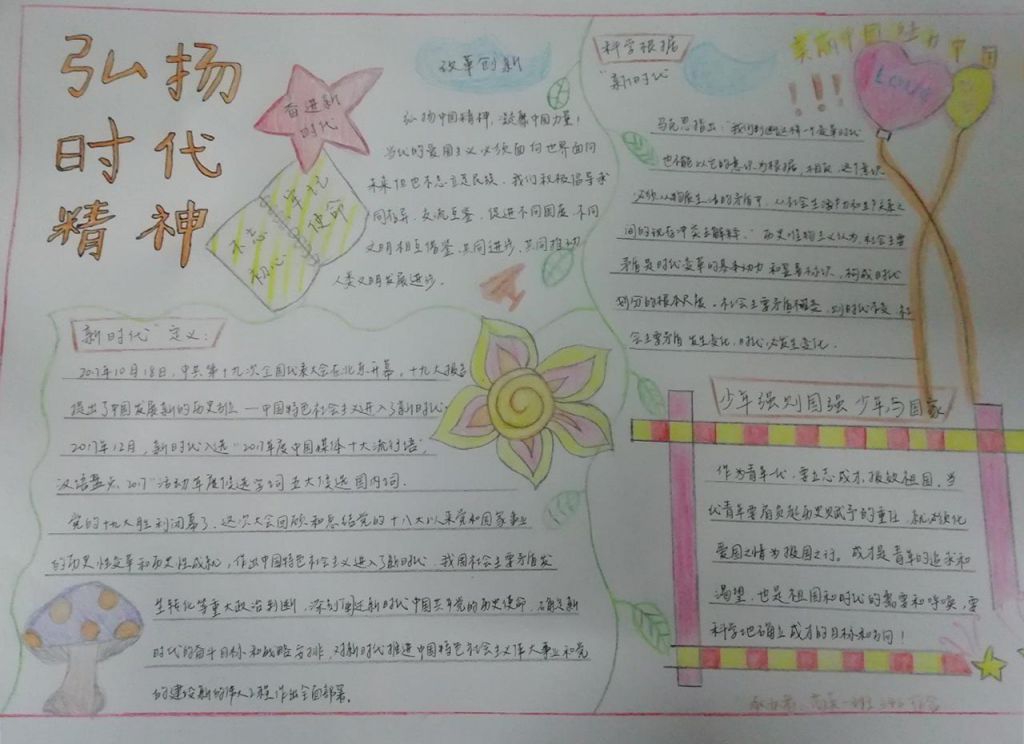 弘扬
时代
精神
奋进新
时代
不忘
初心
牢记
使命
改革创新
弘扬中国精神，凝聚中国力量！
当代的爱国主义必须面向世界面向
未来但也不忘立足民族。我们积极倡导求
同存异、交流互鉴，促进不同国度、不同
文明相互借鉴、共同进步、共同推动
人类文明发展进步。
科学根据
"新时代"
美丽中国
！！！
Love
马克思指出："我们判断这样一个变革时代
也不能以它的意识为根据，相反，这个意识
必须从物质生活的矛盾中，从社会生活
间的现存冲突去解释。"历史唯物主义认为，社会主要
矛盾是时代变革的基本动力和显著标识，构成时代
划分的根本尺度。社会主要矛盾不变，则时代不变，社
会主要矛盾发生变化，时代必发生变化。
新时代"定义：
2017年10月18日，中共第十九次全国代表大会在北京开幕，十九大报告
提出了中国发展新的历史方位——中国特色社会主义进入了新时代。
2017年12月，新时代入选"2017年度中国媒体十大流行语"，
汉语盘点2017"活动年度候选字词五大候选国内词。
党的十九大胜利闭幕了，这次大会回顾和总结党的十八大以来党和国家事业
的历史性变革和历史性成就，作出中国特色社会主义进入了新时代，我国社会主要矛盾发
生转化等重大政治判断，深刻阐述新时代中国共产党的历史使命，确定新
时代的奋斗目标和战略安排，对新时代推进中国特色社会主义伟大事业和党
的建设新的伟大工程作出全面部署。
少年强则国强 少年与国家
作为青年一代，要立志成才、报效祖国。当
代青年要肩负起历史赋予的重任，就必须化
爱国之情为报国之行。成才是青年的追求和
渴望，也是祖国和时代的需要和呼唤，要
科学地确立成才的目标和方向！